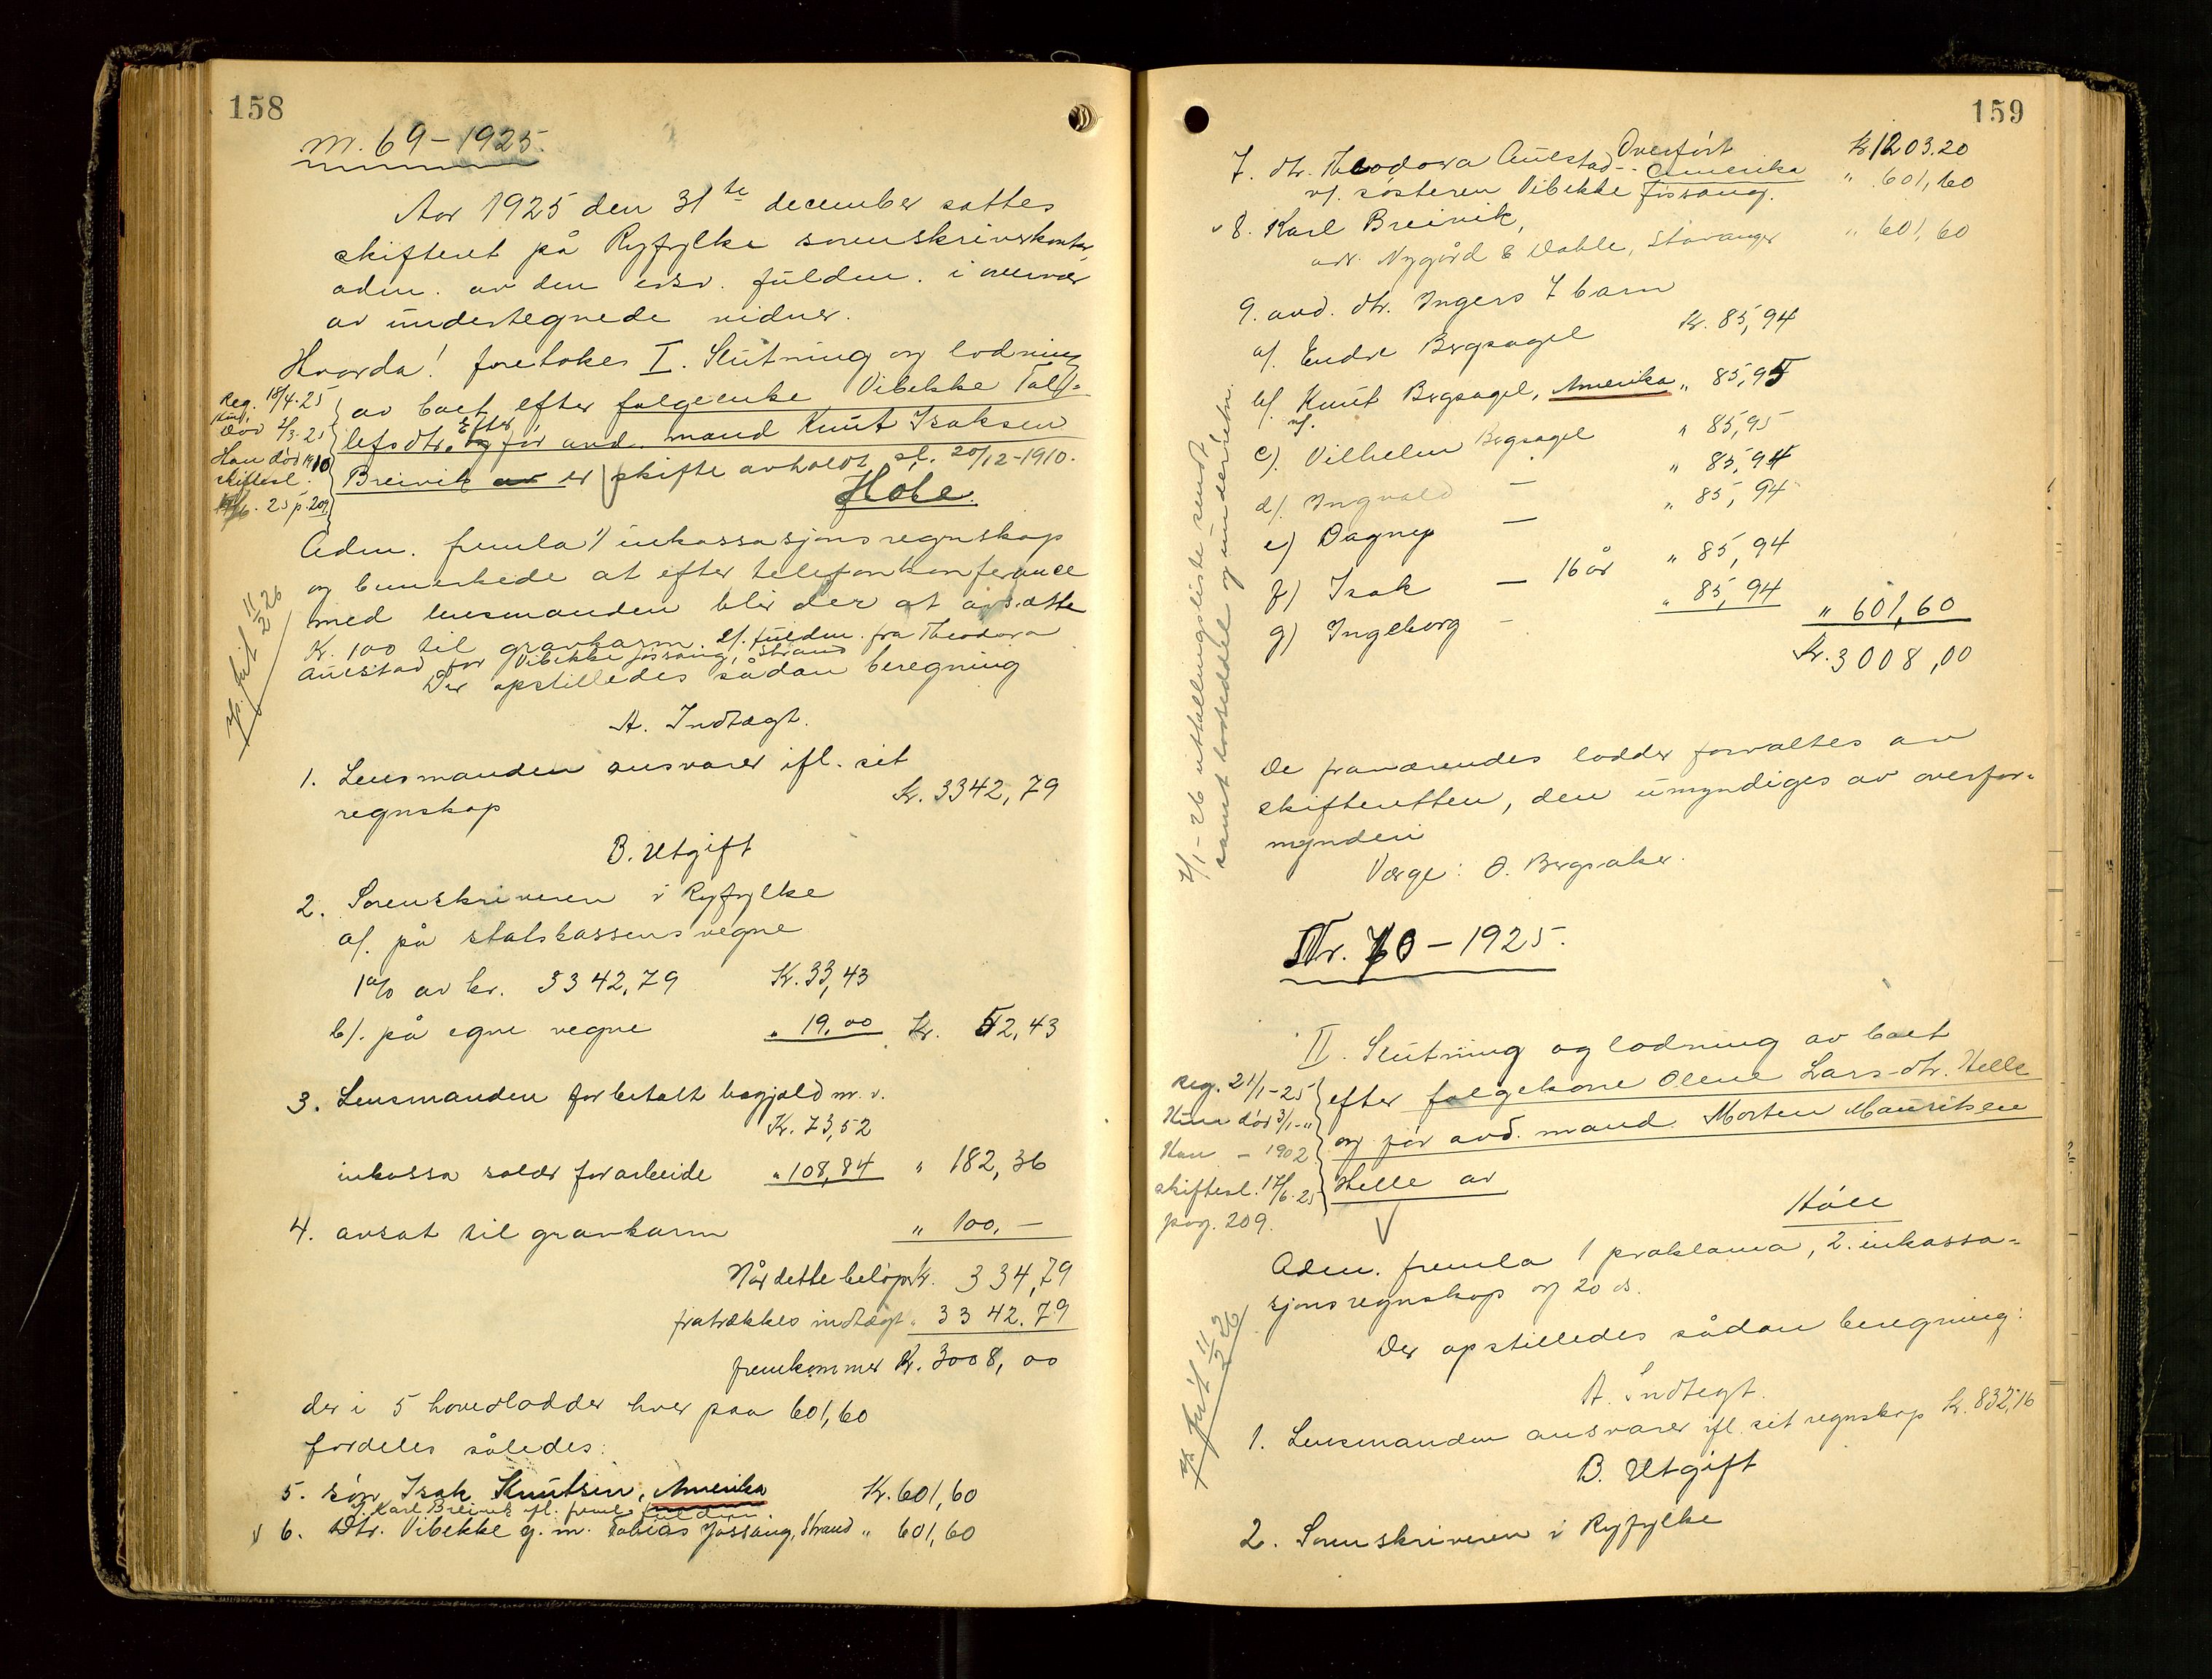 158
Nr. 69 - 1925.
Aar 1925 den 31te december sattes
skifteret på Ryfylke sorenskriverkontor,
adm. av den edsv. fuldm. i overvær
av undertegnede vidner.
Hvorda! foretokes I. Slutning og lodning
av boet efter følgeenke Vibekke Tol-
lefsdtr. Efter før avd. mand Knut Isaksen
Breivik er skifte avholdt, sl. 20/12-1910.
Reg. 18/4-25
Kun,
død 4/3-25
Han død 1910
skiftesl.
25 p. 209
Hole.
Adm. fremla 1/ inkassasjonsregnskap
og bemerkede at efter telefonkonferance
med lensmanden blir der at avsætte
Kr. 100 til gravkarm. 2/. fuldm. fra Theodora
Auestad for Vibekke Jøssang, Strand
Der opstilledes sådan beregning
A. Indtægt.
1. Lensmanden ansvarer ifl. sit
regnskap Kr. 3342,79
B. Utgift
2. Sorenskriveren i Ryfylke
a/. på statskassens vegne
1% av kr. 3342,79 Kr. 33,43
b/. på egne vegne " 19,00 Kr. 52,43
3. Lensmanden for betalt bogjæld m.v.
Kr. 73,52
inkassa salær for arbeide " 108,84 " 182,36
4. avsat til gravkarm " 100,-
Når dette beløper Kr. 334,79
fratrækkes indtægt " 3342.79
fremkommer Kr. 3008,00
der i 5 hovedlodder hver paa 601,60
fordeles således:
5. søn Isak Knutsen, Amerika Kr. 601,60
v/ Karl Breivik ifl. freml. fuldm.
v 6. Dtr. Vibekke g.m. Tobias Jøssang, Strand " 601,60
159
Overført Kr. 1203.20
7. dtr. Theodora Auestad - Amerika " 601,60
v/. søsteren Vibekke Jøssang.
v 8. Karl Breivik, " 601,60
adr. Nygård & Dahle, Stavanger
9. avd. dtr. Ingers 7 barn
a/. Endre Bergsagel Kr. 85,94
b/. Knut Bergsagel, Amerika " 85,95
v/.
c/. Vilhelm Bergsagel " 85,95
d/. Ingvald — " 85,94
e) Dagny — " 85,94
f) Isak — 16 år " 85,94
g) Ingeborg - " 85,94 " 601,60
Kr. 3008,00
De fraværendes lodder forvaltes av
skifteretten, den umyndiges av overfor-
mynderi
Værge: O. Bergsaker.
Nr. 70 - 1925.
II. Slutning og lodning av boet
efter følgekone Olene Larsdtr. Helle
og før avd. mand Morten Mauritsen
Helle av
Reg. 21/1-25
Hun død 3/1-"
Han - 1902
skiftesl. 17/6-25
pag. 209.
Hôle
Adm. fremla 1 proklama, 2. inkassa-
sjonsregnskap og 20 ds.
Der opstilledes sådan beregning:
A. Indtegt.
1. Lensmanden ansvarer ifl. sit regnskap Kr. 832,16
B. Utgift
2. Sorenskriveren i Ryfylke